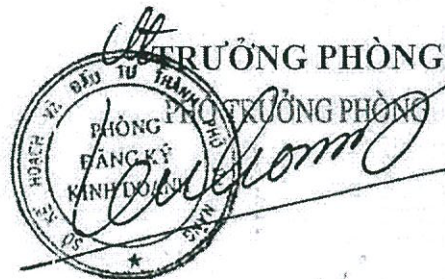 TRƯỞNG PHÒNG
PHÓ TRƯỞNG PHÒNG
SỞ KẾ HOẠCH VÀ ĐẦU TƯ THÀNH PHỐ NẴNG
PHÒNG
ĐĂNG KÝ
KINH DOANH